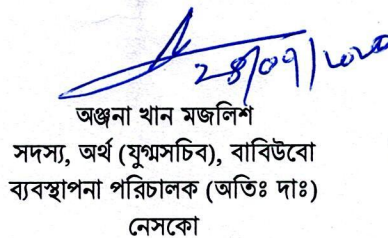 অঞ্জনা খান মজলিশ
সদস্য, অর্থ (যুগ্মসচিব), বাবিউবো
ব্যবস্থাপনা পরিচালক (অতিঃ দাঃ)
নেসকো